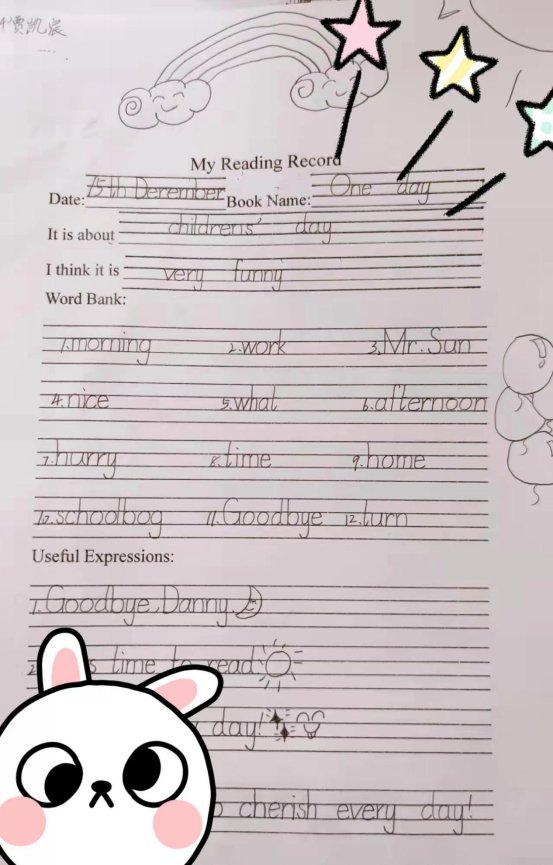 贾凯宸
My Reading Record
Date: 15th Derember Book Name: One day
It is about childrens' day
I think it is very funny
Word Bank:
1.morning 2.work 3.Mr.Sun
4.nice 5.what 6.afternoon
7.hurry 8.time 9.home
10.schoolbog 11.Goodbye 12.turn
Useful Expressions:
1.Goodbye,Danny.
time to read
day!
cherish every day!